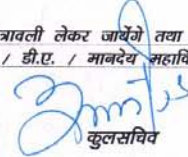 त्रावली लेकर जायेंगे तथा
/ डी.ए. / मानदेय महावि
कुलसचिव